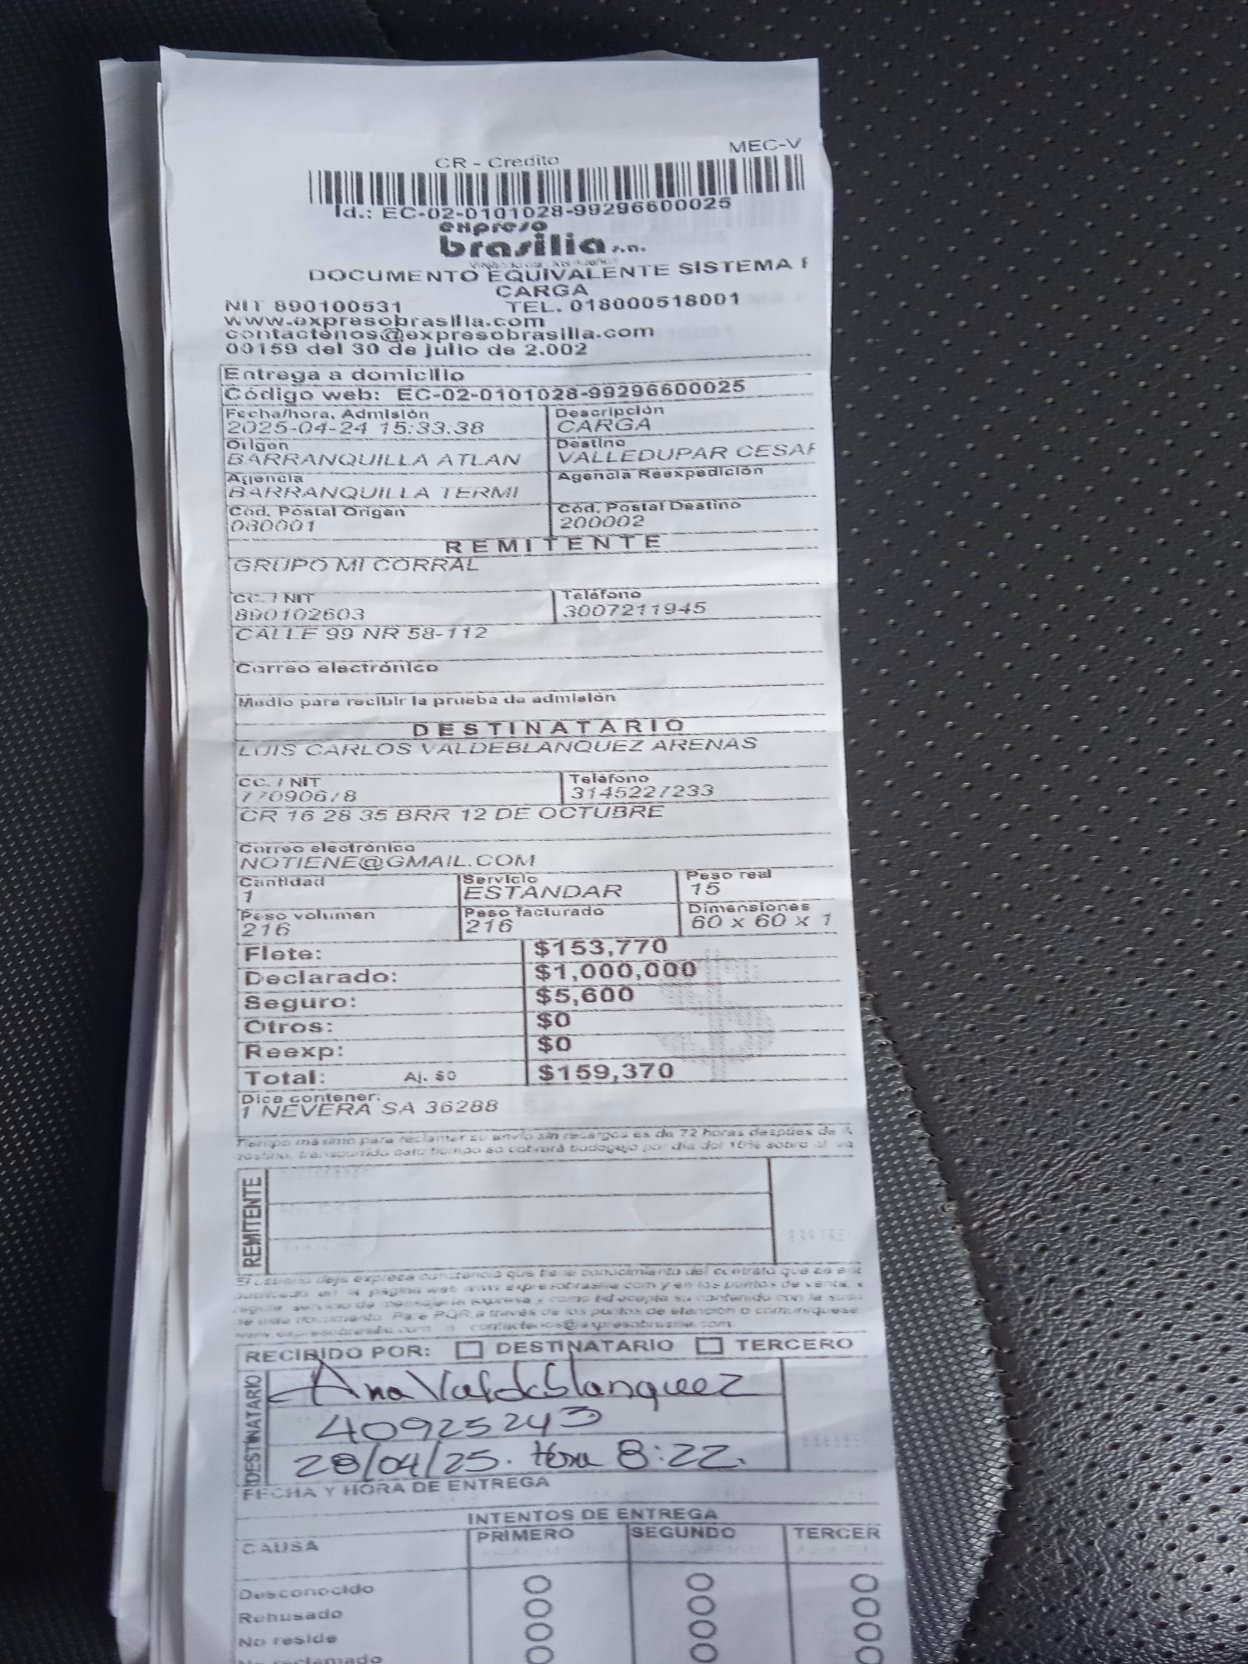 MEC-V
CR - Credito
Id.: EC-02-0101028-99296600025
expreso
brasilia s.a.
DOCUMENTO EQUIVALENTE SISTEMA P
CARGA
NIT 890100531 TEL. 018000518001
www.expresobrasilia.com
contactenos@expresobrasilia.com
00159 del 30 de julio de 2.002
Entrega a domicilio
Código web: EC-02-0101028-99296600025
Fecha/hora, Admisión Descripción
2025-04-24 15:33.38 CARGA
Origen Destino
BARRANQUILLA ATLAN VALLEDUPAR CESAR
Agencia Agencia Reexpedición
BARRANQUILLA TERMI
Cód. Postal Origen Cód. Postal Destino
080001 200002
REMITENTE
GRUPO MI CORRAL
CC. / NIT Teléfono
890102603 3007211945
CALLE 99 NR 58-112
Correo electrónico
Medio para recibir la prueba de admisión
DESTINATARIO
LUIS CARLOS VALDEBLANQUEZ ARENAS
CC. / NIT Teléfono
77090678 3145227233
CR 16 28 35 BRR 12 DE OCTUBRE
Correo electrónico
NOTIENE@GMAIL.COM
Cantidad Servicio Peso real
1 ESTANDAR 15
Peso volumen Peso facturado Dimensiones
216 216 60 x 60 x 1
Flete: $153,770
Declarado: $1,000,000
Seguro: $5,600
Otros: $0
Reexp: $0
Total: Aj. $0 $159,370
Dice contener:
1 NEVERA SA 36288
Tiempo máximo para reclamar su envío sin recargos es de 72 horas después de
destino, transcurrido este tiempo se cobrará bodegaje por día del 10% sobre el va
REMITENTE
El usuario deja expresa constancia que tiene conocimiento del contrato que se
publicado en la página web www.expresobrasilia.com y en los puntos de venta,
regula servicio de mensajería expresa y como tal acepta su contenido con la
de este documento. Para PQR a través de los puntos de atención o comuníquese
www.expresobrasilia.com o contactenos@expresobrasilia.com
RECIBIDO POR: DESTINATARIO TERCERO
DESTINATARIO
Ana Valdeblanquez
40925243
28/04/25. Hora 8:22.
FECHA Y HORA DE ENTREGA
INTENTOS DE ENTREGA
CAUSA PRIMERO SEGUNDO TERCER
Desconocido
Rehusado
No reside
No reclamado